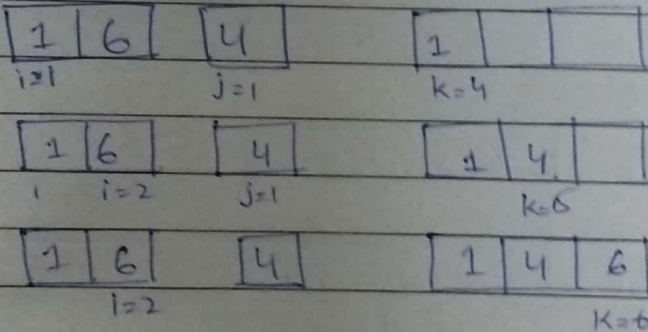 1 6 4 1
i=1 j=1 k=4
1 6 4 1 4
i=2 j=1 k=5
1 6 4 1 4 6
i=2 k=6